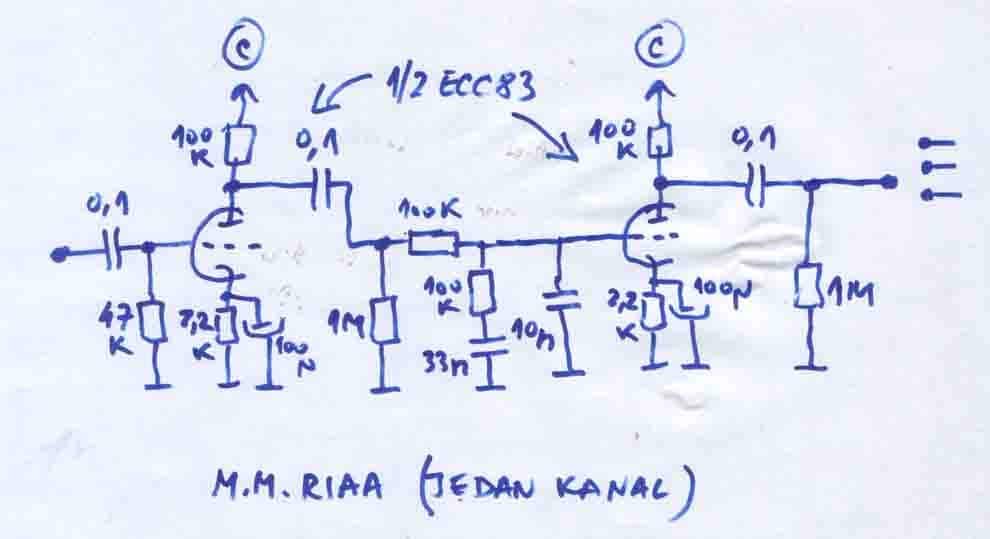 C
C
1/2 ECC83
100
K
0,1
100
K
0,1
0,1
100K
47
K
2,2
K
100
N
1M
100
K
33n
10n
2,2
K
100N
1M
M.M. RIAA (JEDAN KANAL)